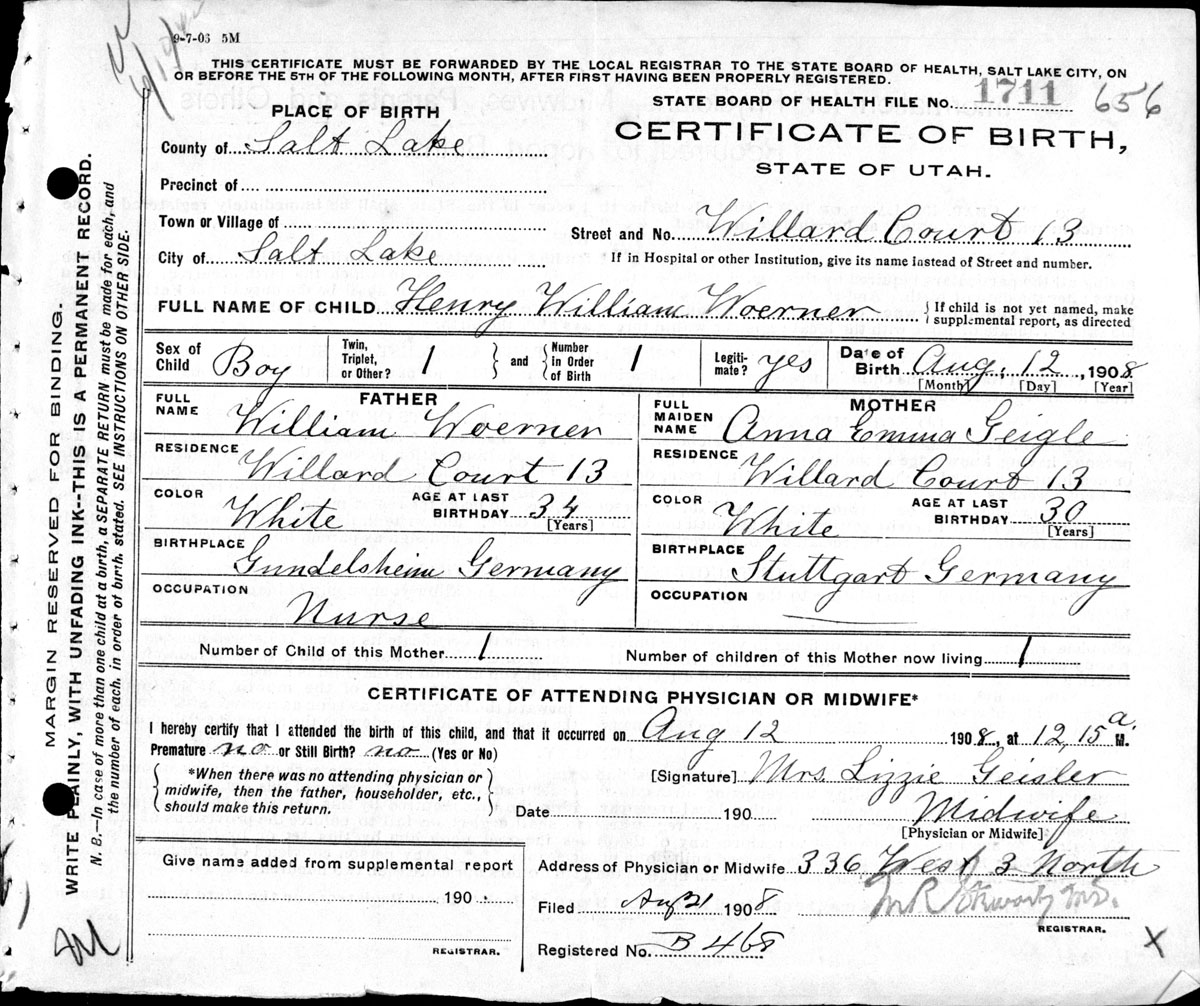 9-7-03 5M
THIS CERTIFICATE MUST BE FORWARDED BY THE LOCAL REGISTRAR TO THE STATE BOARD OF HEALTH, SALT LAKE CITY, ON
OR BEFORE THE 5TH OF THE FOLLOWING MONTH, AFTER FIRST HAVING BEEN PROPERLY REGISTERED.
STATE BOARD OF HEALTH FILE No. 1711 656
PLACE OF BIRTH
CERTIFICATE OF BIRTH,
STATE OF UTAH.
County of Salt Lake
Precinct of
Town or Village of
Street and No. Willard Court 13
City of Salt Lake
If in Hospital or other Institution, give its name instead of Street and number.
FULL NAME OF CHILD Henry William Woerner { If child is not yet named, make
supplemental report, as directed
Sex of Child Boy Twin, Triplet, or Other? 1 } and { Number in Order of Birth 1 Legiti-mate? yes Date of Birth Aug. 12, 1908
[Month] [Day] [Year]
FATHER
MOTHER
FULL NAME William Woerner
FULL MAIDEN NAME Anna Emma Geigle
RESIDENCE Willard Court 13
RESIDENCE Willard Court 13
COLOR White AGE AT LAST BIRTHDAY 34 [Years]
COLOR White AGE AT LAST BIRTHDAY 30 [Years]
BIRTHPLACE Gundelsheim Germany
BIRTHPLACE Stuttgart Germany
OCCUPATION Nurse
OCCUPATION
Number of Child of this Mother 1 Number of children of this Mother now living 1
CERTIFICATE OF ATTENDING PHYSICIAN OR MIDWIFE*
I hereby certify that I attended the birth of this child, and that it occurred on Aug 12 1908, at 12,15 a M.
Premature no or Still Birth? no (Yes or No)
{ *When there was no attending physician or
midwife, then the father, householder, etc.,
should make this return. }
[Signature] Mrs. Lizzie Geisler
Date 190 Midwife
[Physician or Midwife]
Give name added from supplemental report
190 .
REGISTRAR.
Address of Physician or Midwife 336 West 3 North
Filed Aug 21 1908
REGISTRAR.
Registered No. B 468
X
MARGIN RESERVED FOR BINDING.
WRITE PLAINLY, WITH UNFADING INK--THIS IS A PERMANENT RECORD.
N. B.—In case of more than one child at a birth, a SEPARATE RETURN must be made for each, and
the number of each, in order of birth, stated. SEE INSTRUCTIONS ON OTHER SIDE.